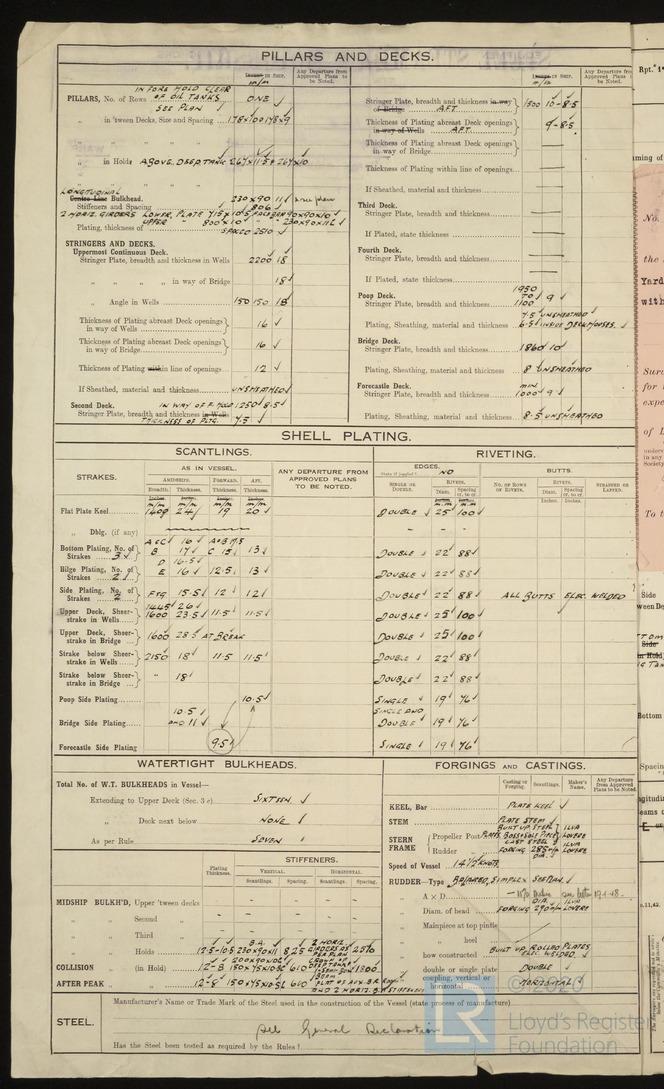 PILLARS AND DECKS.
Inches in Ship.
m/m
Any Departure from Approved Plans to be Noted.
IN FORE HOLD CLEAR
OF OIL TANKS
PILLARS, No. of Rows SEE PLAN ONE
„ in 'tween Decks, Size and Spacing 178×100 178×9
„ „ „ „
„ in Holds ABOVE DEEP TANK 267×11.5 & 267×10
„ „ „
LONGITUDINAL
Centre Line Bulkhead.
Stiffeners and Spacing 230×90 11 & see plan
806
2 HORIZ. GIRDERS LOWER, PLATE 715×10.5 FACE BAR 90×90×10
UPPER „ 800×10 „ 230×90×11
Plating, thickness of SPACED 2510
STRINGERS AND DECKS.
Uppermost Continuous Deck.
Stringer Plate, breadth and thickness in Wells 2200 18
„ „ „ „ in way of Bridge 18
„ Angle in Wells 150 150 18
Thickness of Plating abreast Deck openings in way of Wells 16
Thickness of Plating abreast Deck openings in way of Bridge 16
Thickness of Plating within line of openings 12
If Sheathed, material and thickness UNSHEATHED
Second Deck. IN WAY OF F. HOLD 1250 8.5
Stringer Plate, breadth and thickness in Wells
THICKNESS OF PLTG. 7.5
Inches in Ship.
m/m
Any Departure from Approved Plans to be Noted.
Stringer Plate, breadth and thickness in way of Bridge AFT 1500 10-8.5
Thickness of Plating abreast Deck openings in way of Wells AFT 9-8.5
Thickness of Plating abreast Deck openings in way of Bridge
Thickness of Plating within line of openings
If Sheathed, material and thickness
Third Deck.
Stringer Plate, breadth and thickness
If Plated, state thickness
Fourth Deck.
Stringer Plate, breadth and thickness
If Plated, state thickness
Poop Deck. 1950 TO
Stringer Plate, breadth and thickness 1100 9
7.5 UNSHEATHED
Plating, Sheathing, material and thickness 6.5 INSIDE DECKHOUSES.
Bridge Deck.
Stringer Plate, breadth and thickness 1860 10
Plating, Sheathing, material and thickness 8 UNSHEATHED
Forecastle Deck.
Stringer Plate, breadth and thickness 1000 9
Plating, Sheathing, material and thickness 8.5 UNSHEATHED
SHELL PLATING.
SCANTLINGS.
RIVETING.
STRAKES.
AS IN VESSEL.
AMIDSHIPS. FORWARD. AFT.
Breadth. Thickness. Thickness. Thickness.
ANY DEPARTURE FROM APPROVED PLANS TO BE NOTED.
EDGES.
State if joggled? NO
SINGLE OR DOUBLE.
RIVETS.
Diam. Spacing cr. to cr.
BUTTS.
NO. OF ROWS OF RIVETS.
RIVETS.
Diam. Spacing cr. to cr.
Inches. Inches.
STRAPPED OR LAPPED.
Flat Plate Keel 1400 24 19 20 DOUBLE 25 100
„ Dblg. (if any)
A & C 16 A & B 17.5
Bottom Plating, No. of Strakes 3 B 17 C 15 13 DOUBLE 22 88
D 16.5
Bilge Plating, No. of Strakes 2 E 16 12.5 13 DOUBLE 22 88
Side Plating, No. of Strakes 2 F & G 15.5 12 12 DOUBLE 22 88 ALL BUTTS ELEC. WELDED
Upper Deck, Sheerstrake in Wells 1445 26
1600 23.5 11.5 11.5 DOUBLE 25 100
Upper Deck, Sheerstrake in Bridge 1600 28.5 AT BREAK DOUBLE 25 100
Strake below Sheerstrake in Wells 2150 18 11.5 11.5 DOUBLE 22 88
Strake below Sheerstrake in Bridge „ 18 DOUBLE 22 88
Poop Side Plating 10.5 SINGLE 19 76
Bridge Side Plating 10.5 AND 11 SINGLE AND DOUBLE 19 76
Forecastle Side Plating 9.5 SINGLE 19 76
WATERTIGHT BULKHEADS.
Total No. of W.T. BULKHEADS in Vessel—
Extending to Upper Deck (Sec. 3 c) SIXTEEN
„ Deck next below NONE
As per Rule SEVEN
Plating Thickness.
STIFFENERS.
VERTICAL. HORIZONTAL.
Scantlings. Spacing. Scantlings. Spacing.
MIDSHIP BULKH'D, Upper 'tween decks
„ „ Second „
„ „ Third „
„ „ Holds 12.5-10.5 B.A. 230×90×11 825 2 HORIZ. GIRDERS AS PER PLAN 2510
COLLISION „ (in Hold) 12-8 150×75×10.5 610 1800
AFTER PEAK „ „ 12-8 150×75×10.5 610
FORGINGS AND CASTINGS.
Casting or Forging. Scantlings. Maker's Name. Any Departure from Approved Plans to be Noted.
KEEL, Bar PLATE KEEL
STEM PLATE STEM
STERN FRAME Propeller Post BUILT UP STEEL PLATES, BOSS & SOLE PIECE CAST STEEL ILVA LOVERE
Rudder „ FORGING 285 m/m DIA. ILVA LOVERE
Speed of Vessel 14½ KNOTS
RUDDER—Type BALANCED, SIMPLEX
A × D
Diam. of head FORGING 290 m/m DIA. ILVA LOVERE
Mainpiece at top pintle
„ heel
how constructed BUILT UP, ROLLED PLATES, ELEC. WELDED.
double or single plate DOUBLE
coupling, vertical or horizontal HORIZONTAL
STEEL.
Manufacturer's Name or Trade Mark of the Steel used in the construction of the Vessel (state process of manufacture)
See General Declaration
Has the Steel been tested as required by the Rules?
© 2020
LR
Lloyd's Register
Foundation